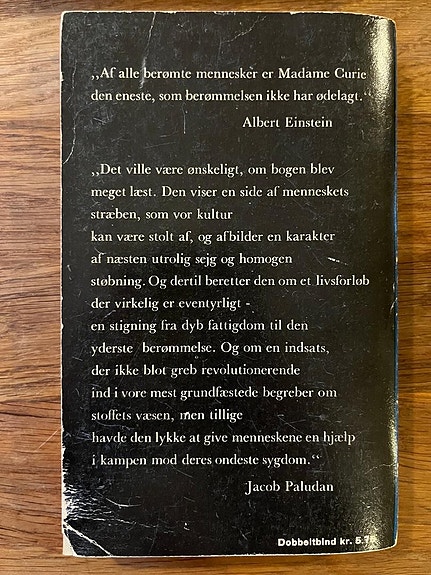 „Af alle berømte mennesker er Madame Curie
den eneste, som berømmelsen ikke har ødelagt.“
Albert Einstein
„Det ville være ønskeligt, om bogen blev
meget læst. Den viser en side af menneskets
stræben, som vor kultur
kan være stolt af, og afbilder en karakter
af næsten utrolig sejg og homogen
støbning. Og dertil beretter den om et livsforløb
der virkelig er eventyrligt -
en stigning fra dyb fattigdom til den
yderste berømmelse. Og om en indsats,
der ikke blot greb revolutionerende
ind i vore mest grundfæstede begreber om
stoffets væsen, men tillige
havde den lykke at give menneskene en hjælp
i kampen mod deres ondeste sygdom.“
Jacob Paludan
Dobbeltbind kr. 5.75